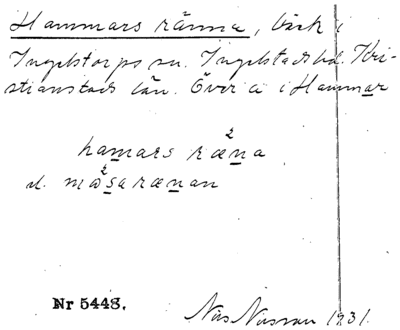 Hammars ränna, bäck i
Ingelstorps sn. Ingelstads hd. Kri-
stianstads län. Över a i Hammar
hamars ræ²na
el. mo²saræ̱nan
Nr 5448.
Nils Nilsson 1931.